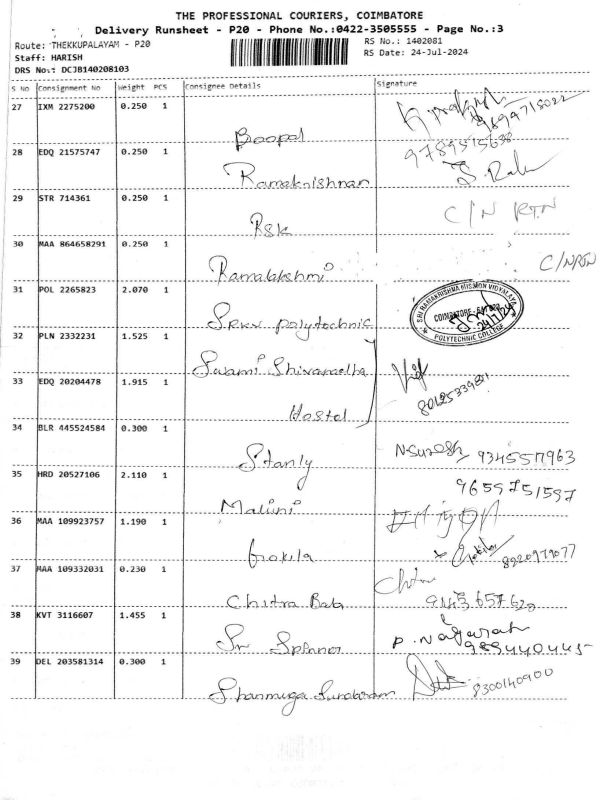 THE PROFESSIONAL COURIERS, COIMBATORE
Delivery Runsheet - P20 - Phone No.:0422-3505555 - Page No.:3
Route: THEKKUPALAYAM - P20 RS No.: 1402081
Staff: HARISH RS Date: 24-Jul-2024
DRS No.: DCJB140208103
S No Consignment No Weight PCS Consignee Details Signature
27 IXM 2275200 0.250 1
Boopal
28 EDQ 21575747 0.250 1
Ramakrishnan
29 STR 714361 0.250 1 C/N RTN
RSK
30 MAA 864658291 0.250 1 C/N RTN
Ramalakshmi
31 POL 2265823 2.070 1 SRI RAMAKRISHNA MISSION VIDYALAYA
COIMBATORE
POLYTECHNIC COLLEGE
SRKV polytechnic
32 PLN 2332231 1.525 1
Swami Shivanadha
33 EDQ 20204478 1.915 1
Hostel
34 BLR 445524584 0.300 1
Stanly N.Suresh
35 HRD 20527106 2.110 1 9659751597
Malini
36 MAA 109923757 1.190 1
Gokila 8220979077
37 MAA 109332031 0.230 1
Chitra Baba
38 KVT 3116607 1.455 1 P. Nagaraj
Sri
39 DEL 203581314 0.300 1 8300140900
Shanmuga Sundaram